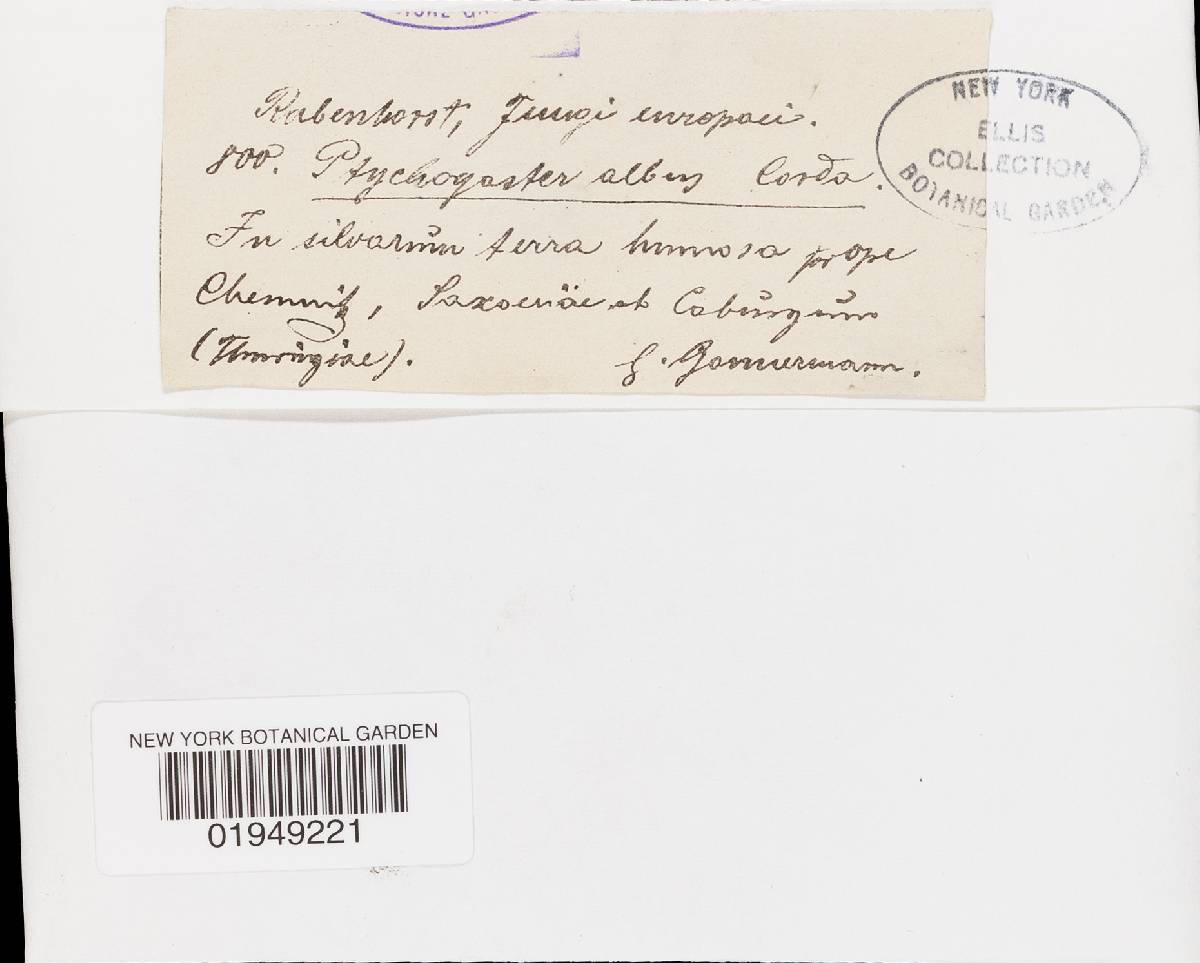 Rabenhorst, Fungi europaei.
800. Ptychogaster albus Corda.
In silvarum terra humosa prope
Chemnitz, Saxoniae et Coburgum
(Thuringiae).
G. Gonnermann.
NEW YORK
ELLIS
COLLECTION
BOTANICAL GARDEN
NEW YORK BOTANICAL GARDEN
01949221